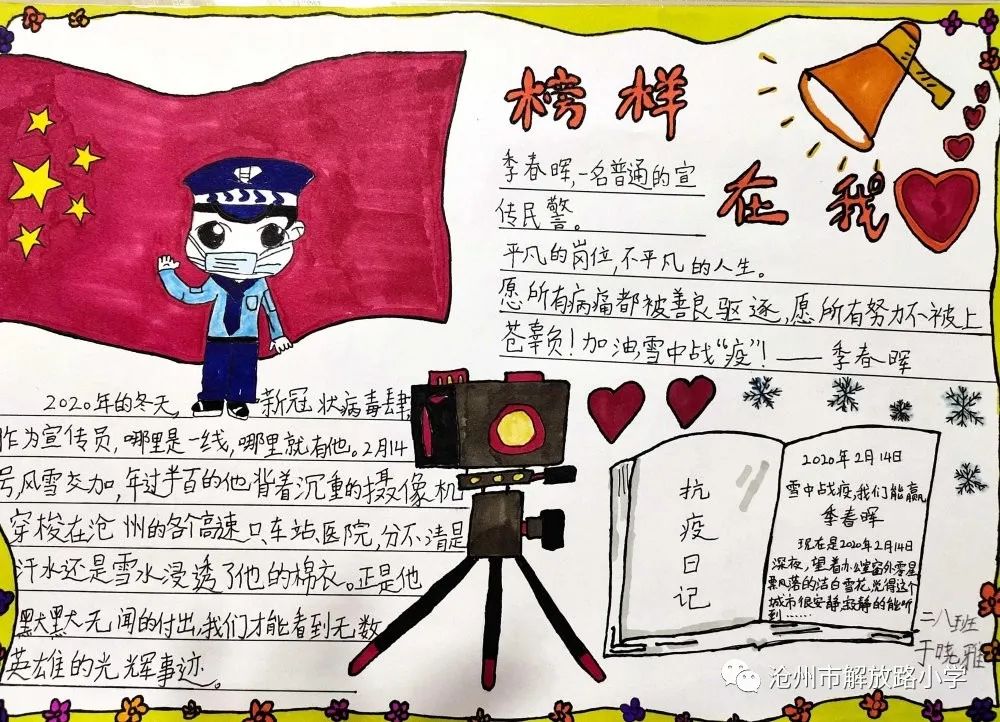 榜样
在我
季春晖,一名普通的宣
传民警。
平凡的岗位,不平凡的人生。
愿所有病痛都被善良驱逐,愿所有努力不被上
苍辜负!加油,雪中战“疫”!——季春晖
2020年的冬天,新冠状病毒肆
作为宣传员,哪里是一线,哪里就有他。2月14
号,风雪交加,年过半百的他背着沉重的摄像机
穿梭在沧州的各个高速口、车站、医院,分不清是
汗水还是雪水浸透了他的棉衣。正是他
默默无闻的付出,我们才能看到无数
英雄的光辉事迹。
抗
疫
日
记
2020年2月14日
雪中战疫,我们能赢
季春晖
现在是2020年2月14日
深夜,望着办公室窗外零星
飘落的洁白雪花,觉得这个
城市很安静,寂静的能听
到……
二八班
于晓雅
沧州市解放路小学